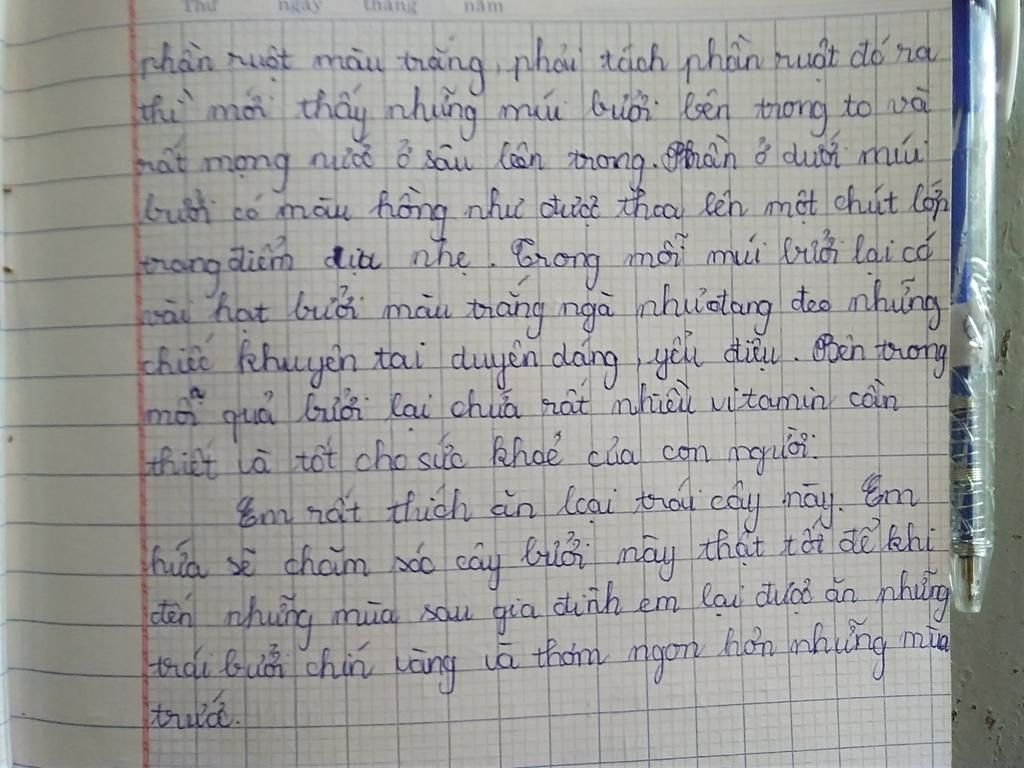 Thứ ngày tháng năm
phần ruột màu trắng, phải tách phần ruột đó ra
thì mới thấy những múi bưởi bên trong to và
rất mọng nước ở sâu bên trong. Phần ở dưới múi
bưởi có màu hồng như được thoa lên một chút lớp
trang điểm dịu nhẹ. Trong mỗi múi bưởi lại có
vài hạt bưởi màu trắng ngà như đang đeo những
chiếc khuyên tai duyên dáng, yểu điệu. Bên trong
mỗi quả bưởi lại chứa rất nhiều vitamin cần
thiết và tốt cho sức khoẻ của con người.
Em rất thích ăn loại trái cây này. Em
hứa sẽ chăm sóc cây bưởi này thật tốt để khi
đến những mùa sau gia đình em lại được ăn những
trái bưởi chín vàng và thơm ngon hơn những mùa
trước.